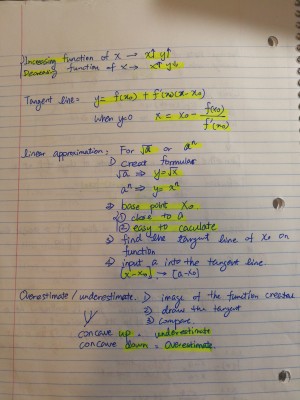 Increasing function of x → x↑ y↑
Decreasing function of x → x↑ y↓
Tangent line: y = f(x₀) + f'(x₀)(x-x₀)
when y=0 x = x₀ - f(x₀)/f'(x₀)
linear approximation: For √a or aⁿ
1) creat formular
√a ⇒ y=√x
aⁿ ⇒ y= xⁿ
2) base point x₀
① close to a
② easy to caculate
3) find the tangent line of x₀ on
function
4) input a into the tangent line
[x-x₀] → [a-x₀]
Overestimate / underestimate. 1) image of the function created
2) draw the tangent
3) compare.
concave up = underestimate
concave down = overestimate.